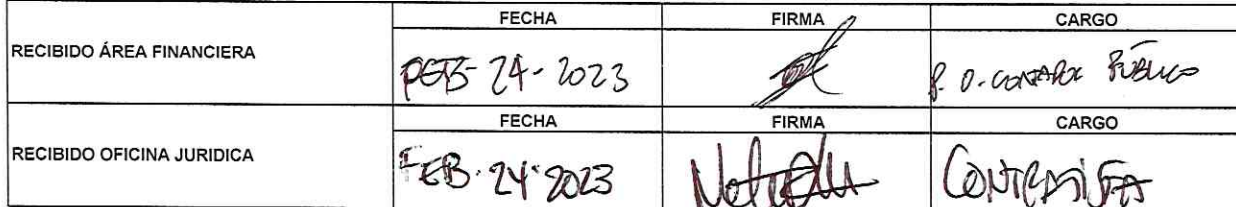 FECHA FIRMA CARGO
RECIBIDO ÁREA FINANCIERA FEB-24-2023 P. O. CONTADOR PÚBLICO
FECHA FIRMA CARGO
RECIBIDO OFICINA JURIDICA FEB. 24-2023 CONTRATISTA